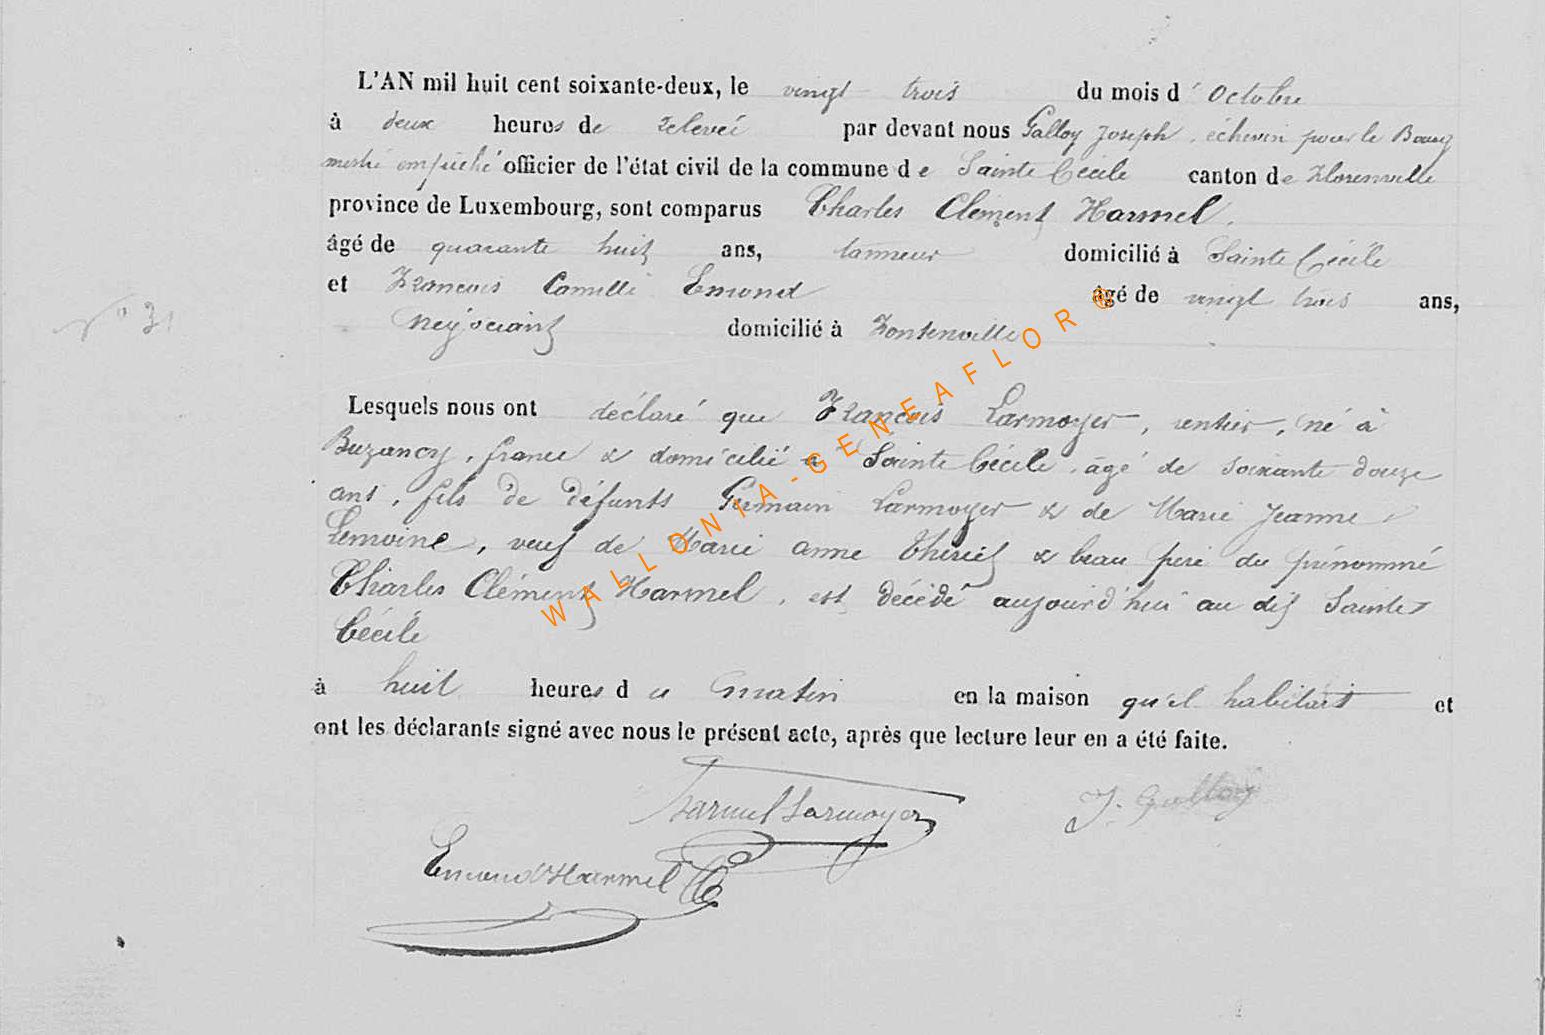 L'AN mil huit cent soixante-deux, le vingt trois du mois d' Octobre
à deux heures de relevée par devant nous Galloy Joseph, échevin pour le Bourg
mestre empêché officier de l'état civil de la commune de Sainte Cécile canton de Florenville
province de Luxembourg, sont comparus Charles Clément Harmel,
âgé de quarante huit ans, tanneur domicilié à Sainte Cécile
et François Camille Emond âgé de vingt trois ans,
n° 31
Négociant domicilié à Fontenoille
Lesquels nous ont déclaré que François Larmoyer, rentier, né à
Buzancy, france & domicilié à Sainte Cécile, âgé de soixante douze
ans, fils de défunts Germain Larmoyer & de Marie Jeanne
Lemoine, veuf de Marie anne Thiriet & beau père du prénommé
Charles Clément Harmel, est décédé aujourd'hui au dit Sainte
Cécile
à huit heures du matin en la maison qu'il habitait et
ont les déclarants signé avec nous le présent acte, après que lecture leur en a été faite.
Harmel Larmoyer J. Galloy
Emond Harmel
WALLONIA-GENEAFLOR®